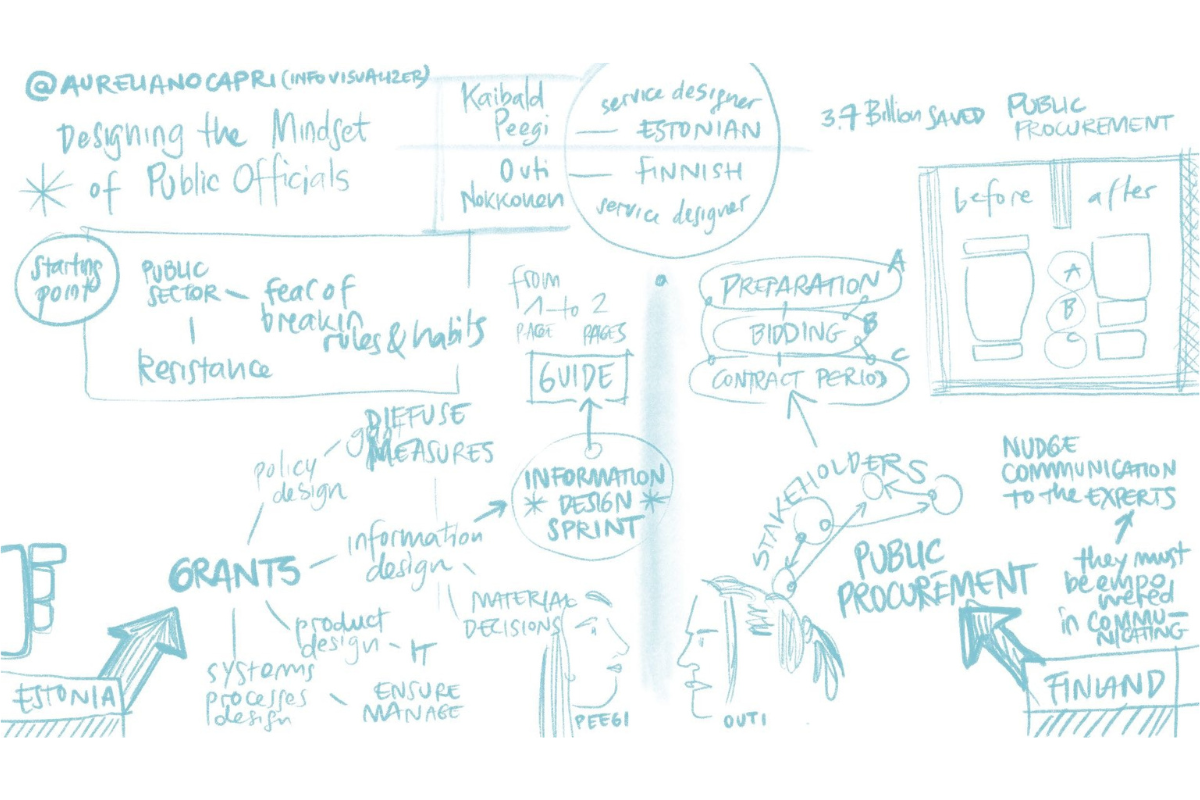 @AURELIANOCAPRI (INFOVISUALIZER)
Designing the Mindset
of Public Officials
Kaibald
Peegi
service designer
ESTONIAN
Outi
Nokkonen
FINNISH
service designer
3.7 Billion SAVED
PUBLIC
PROCUREMENT
before
after
A
B
C
Starting
point
PUBLIC
SECTOR
fear of
breakin
rules & habits
Resistance
from
1 to 2
PAGE PAGES
GUIDE
INFORMATION
DESIGN
SPRINT
PREPARATION A
BIDDING B
CONTRACT PERIOD C
DIFFUSE
MEASURES
policy
design
GRANTS
information
design
MATERIAL
DECISIONS
product
design - IT
systems
processes
design
ENSURE
MANAGE
ESTONIA
PEEGI
OUTI
STAKEHOLDERS
PUBLIC
PROCUREMENT
NUDGE
COMMUNICATION
to the EXPERTS
they must
be empo
wered
in COMMU-
NICATING
FINLAND